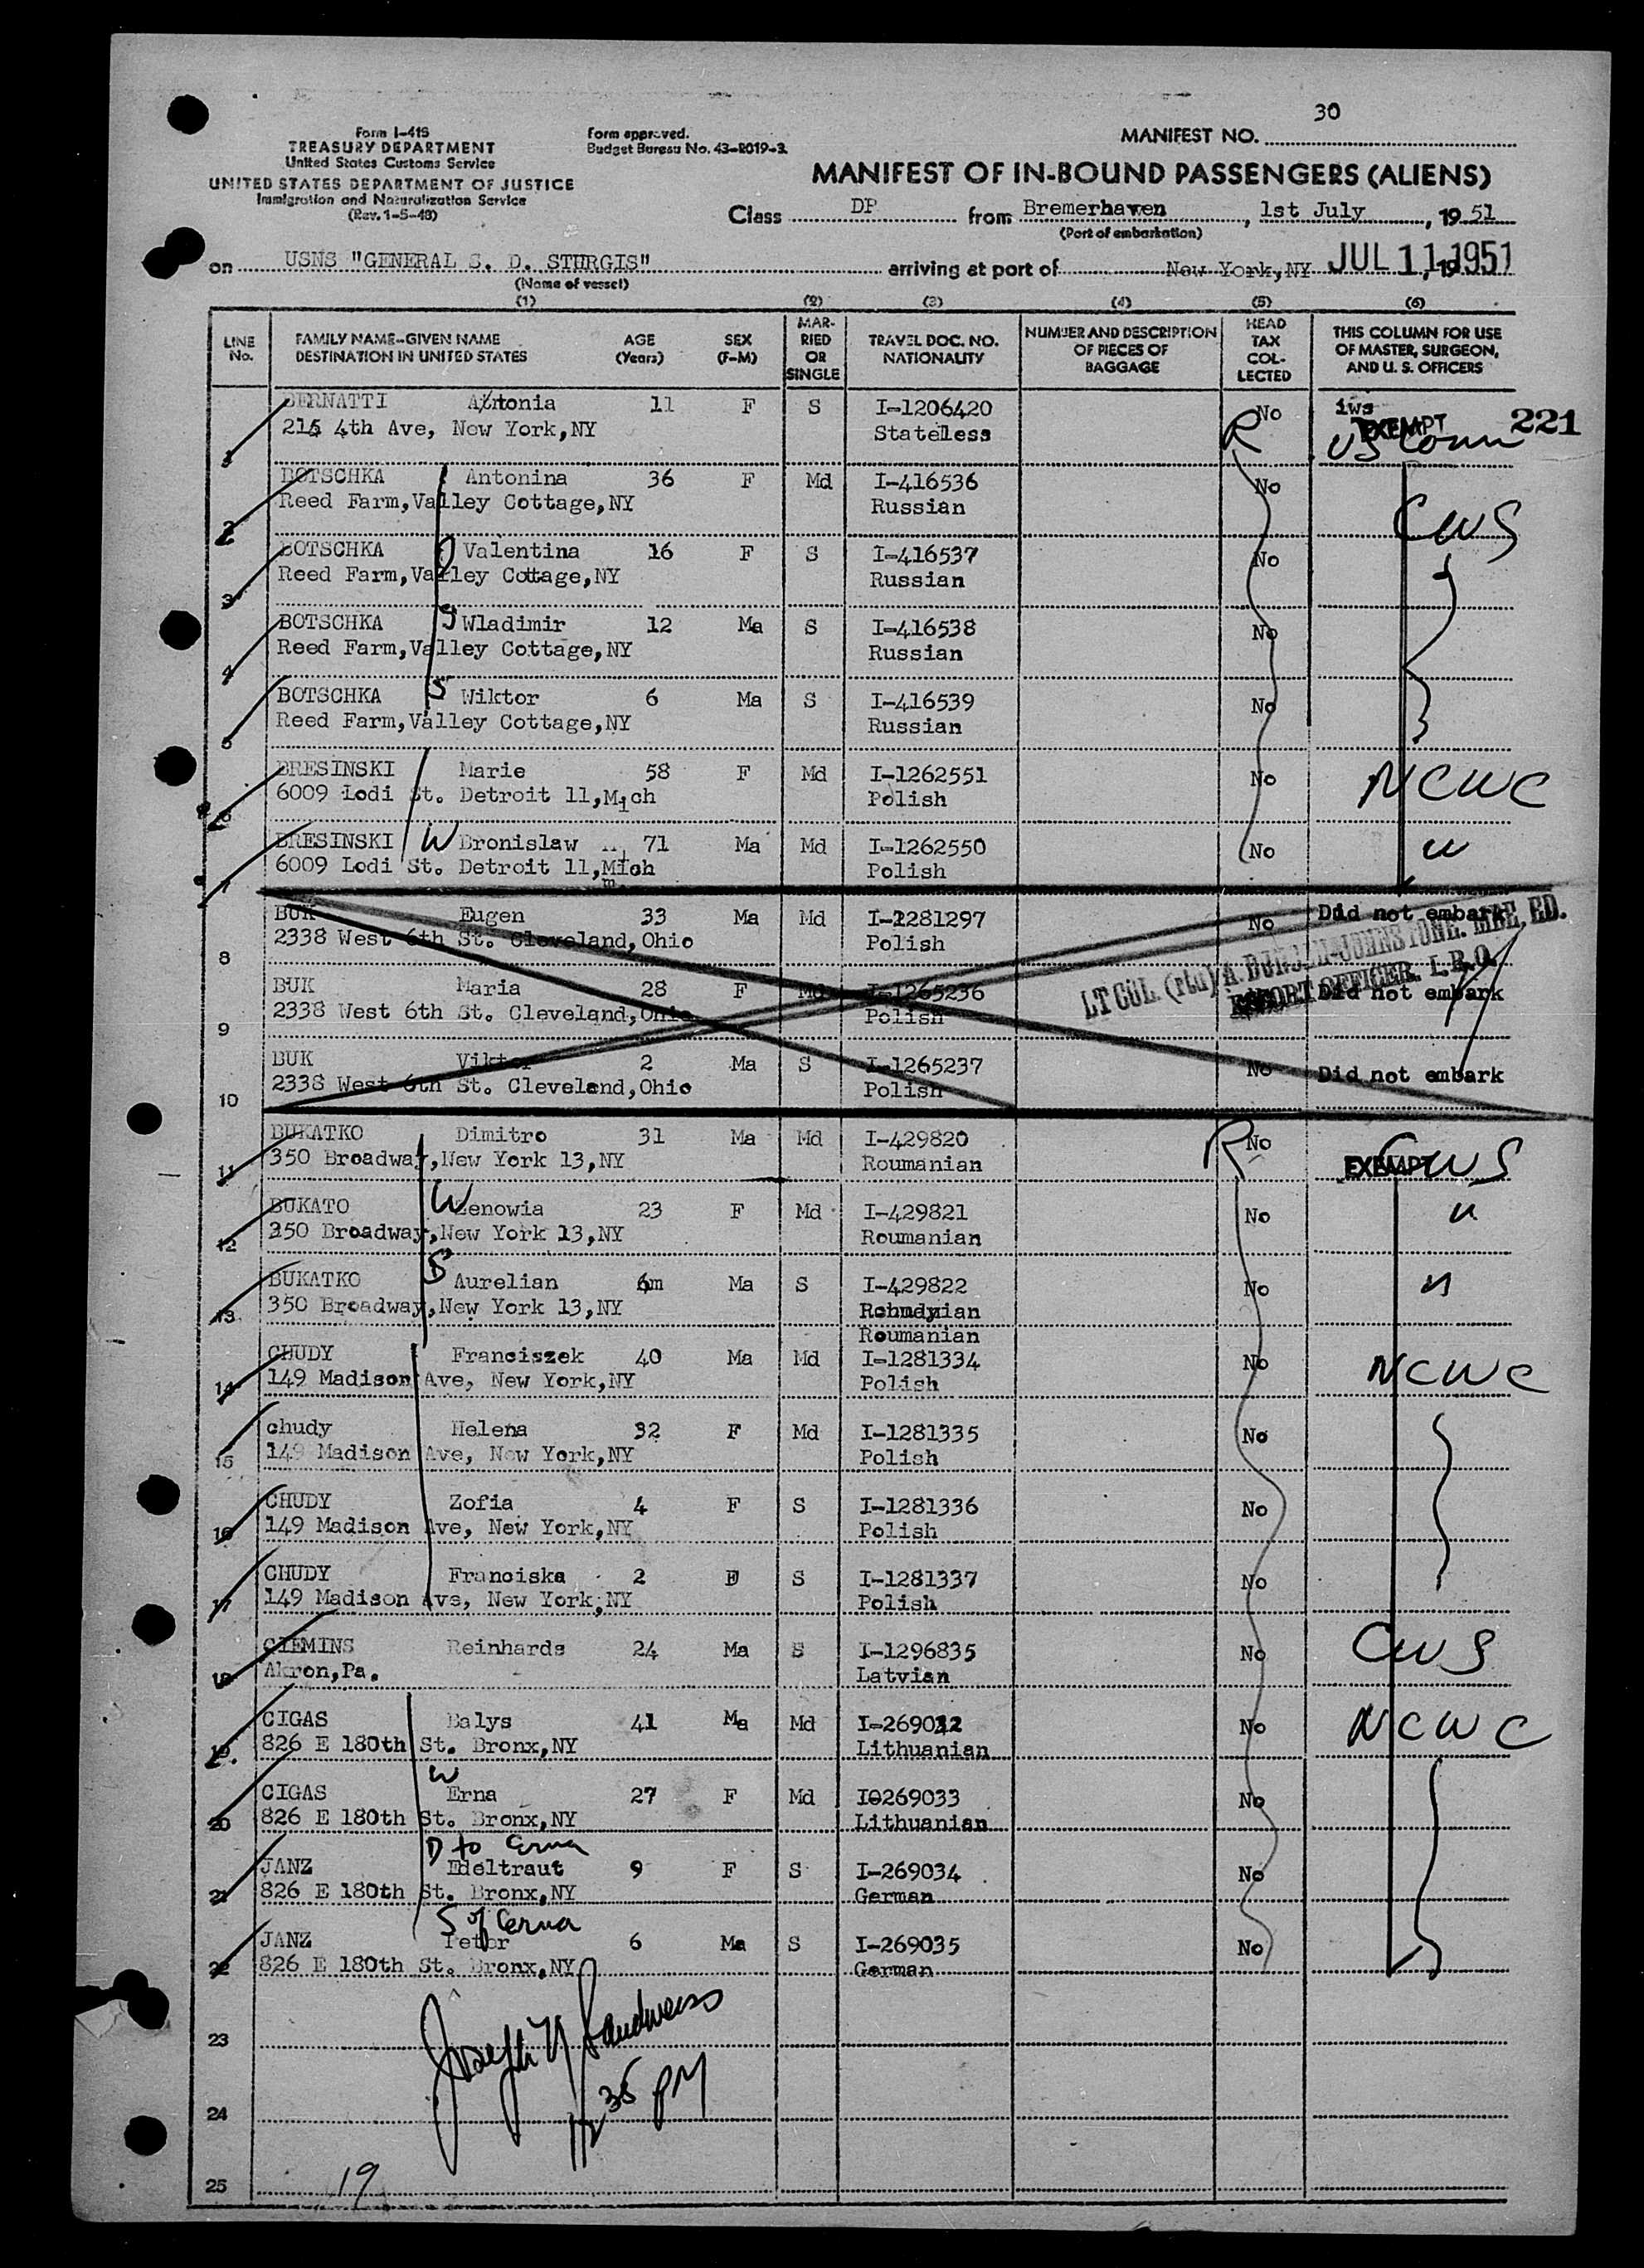 30
Form I-415
TREASURY DEPARTMENT
United States Customs Service
UNITED STATES DEPARTMENT OF JUSTICE
Immigration and Naturalization Service
(Rev. 1-5-48)
Form approved.
Budget Bureau No. 43-R019-3.
MANIFEST NO.
MANIFEST OF IN-BOUND PASSENGERS (ALIENS)
Class DP from Bremerhaven, 1st July, 19 51
(Port of embarkation)
on USNS "GENERAL S. D. STURGIS" arriving at port of New York, NY JUL 11 1951, 19
(Name of vessel)
(1) (2) (3) (4) (5) (6)
LINE No. FAMILY NAME-GIVEN NAME DESTINATION IN UNITED STATES AGE (Years) SEX (F-M) MARRIED OR SINGLE TRAVEL DOC. NO. NATIONALITY NUMBER AND DESCRIPTION OF PIECES OF BAGGAGE HEAD TAX COLLECTED THIS COLUMN FOR USE OF MASTER, SURGEON, AND U. S. OFFICERS
BERNATTI Antonia 11 F S I-1206420 R No iws EXEMPT 221
1 215 4th Ave, New York,NY Stateless US Comm
BOTSCHKA Antonina 36 F Md I-416536 No
2 Reed Farm,Valley Cottage,NY Russian CWS
BOTSCHKA Valentina 16 F S I-416537 No
3 Reed Farm,Valley Cottage,NY Russian
BOTSCHKA S Wladimir 12 Ma S I-416538 No
4 Reed Farm,Valley Cottage,NY Russian
BOTSCHKA S Wiktor 6 Ma S I-416539 No
5 Reed Farm,Valley Cottage,NY Russian
BRESINSKI Marie 58 F Md I-1262551 No NCWC
6 6009 Lodi St. Detroit 11,Mich Polish
BRESINSKI W Bronislaw 71 Ma Md I-1262550 No "
7 6009 Lodi St. Detroit 11,Mich Polish
BUK Eugen 33 Ma Md I-1281297 No Did not embark
8 2338 West 6th St. Cleveland,Ohio Polish
LT COL. (rtd) A. MBE, ED.
ESCORT OFFICER. I.R.O.
BUK Maria 28 F Md I-1265236 Did not embark
9 2338 West 6th St. Cleveland,Ohio Polish
BUK Viktor 2 Ma S I-1265237 No Did not embark
10 2338 West 6th St. Cleveland,Ohio Polish
BUKATKO Dimitro 31 Ma Md I-429820 R No EXEMPT CWS
11 350 Broadway,New York 13,NY Roumanian
BUKATO W Zenowia 23 F Md I-429821 No "
12 350 Broadway,New York 13,NY Roumanian
BUKATKO S Aurelian 6m Ma S I-429822 No "
13 350 Broadway,New York 13,NY
Roumanian
CHUDY Franciszek 40 Ma Md I-1281334 No NCWC
14 149 Madison Ave, New York,NY Polish
chudy Helena 32 F Md I-1281335 No
15 149 Madison Ave, New York,NY Polish
CHUDY Zofia 4 F S I-1281336 No
16 149 Madison Ave, New York,NY Polish
CHUDY Franciska 2 F S I-1281337 No
17 149 Madison Ave, New York,NY Polish
CIEMINS Reinhards 24 Ma S I-1296835 No CWS
18 Akron,Pa. Latvian
CIGAS Balys 41 Ma Md I-269032 No NCWC
19 826 E 180th St. Bronx,NY Lithuanian
W
CIGAS Erna 27 F Md I0269033 No
20 826 E 180th St. Bronx,NY Lithuanian
D to Erna
JANZ Edeltraut 9 F S I-269034 No
21 826 E 180th St. Bronx,NY German
S of Erna
JANZ Peter 6 Ma S I-269035 No
22 826 E 180th St. Bronx,NY German
Joseph Sandweiss
23
35 PM
24
25 19